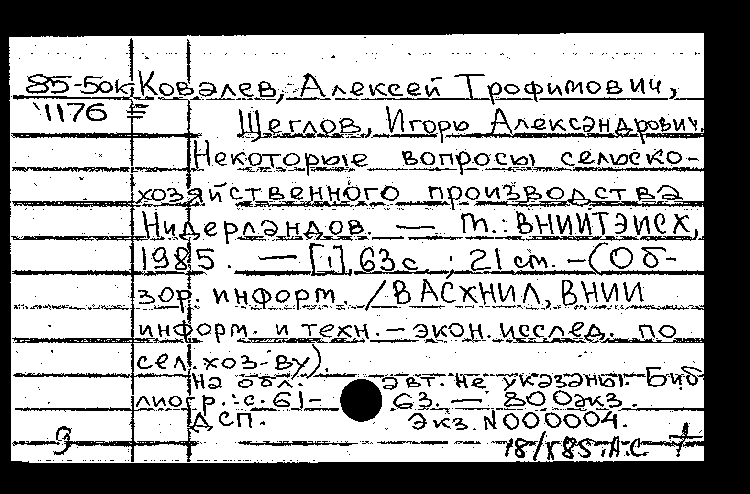 85-5ок Ковалев, Алексей Трофимович,
1176 ≡ Щеглов, Игорь Александрович.
Некоторые вопросы сельско-
хозяйственного производства
Нидерландов. — М.: ВНИИТЭИСХ,
1985. — [1], 63 с. ; 21 см. — (Об-
зор. информ. / ВАСХНИЛ, ВНИИ
информ. и техн.-экон. исслед. по
сел. хоз-ву).
На обл. авт. не указаны. Биб-
лиогр.: с. 61-63. — 800 экз.
ДСП. Экз. N000004.
9 18/X85 А.С.